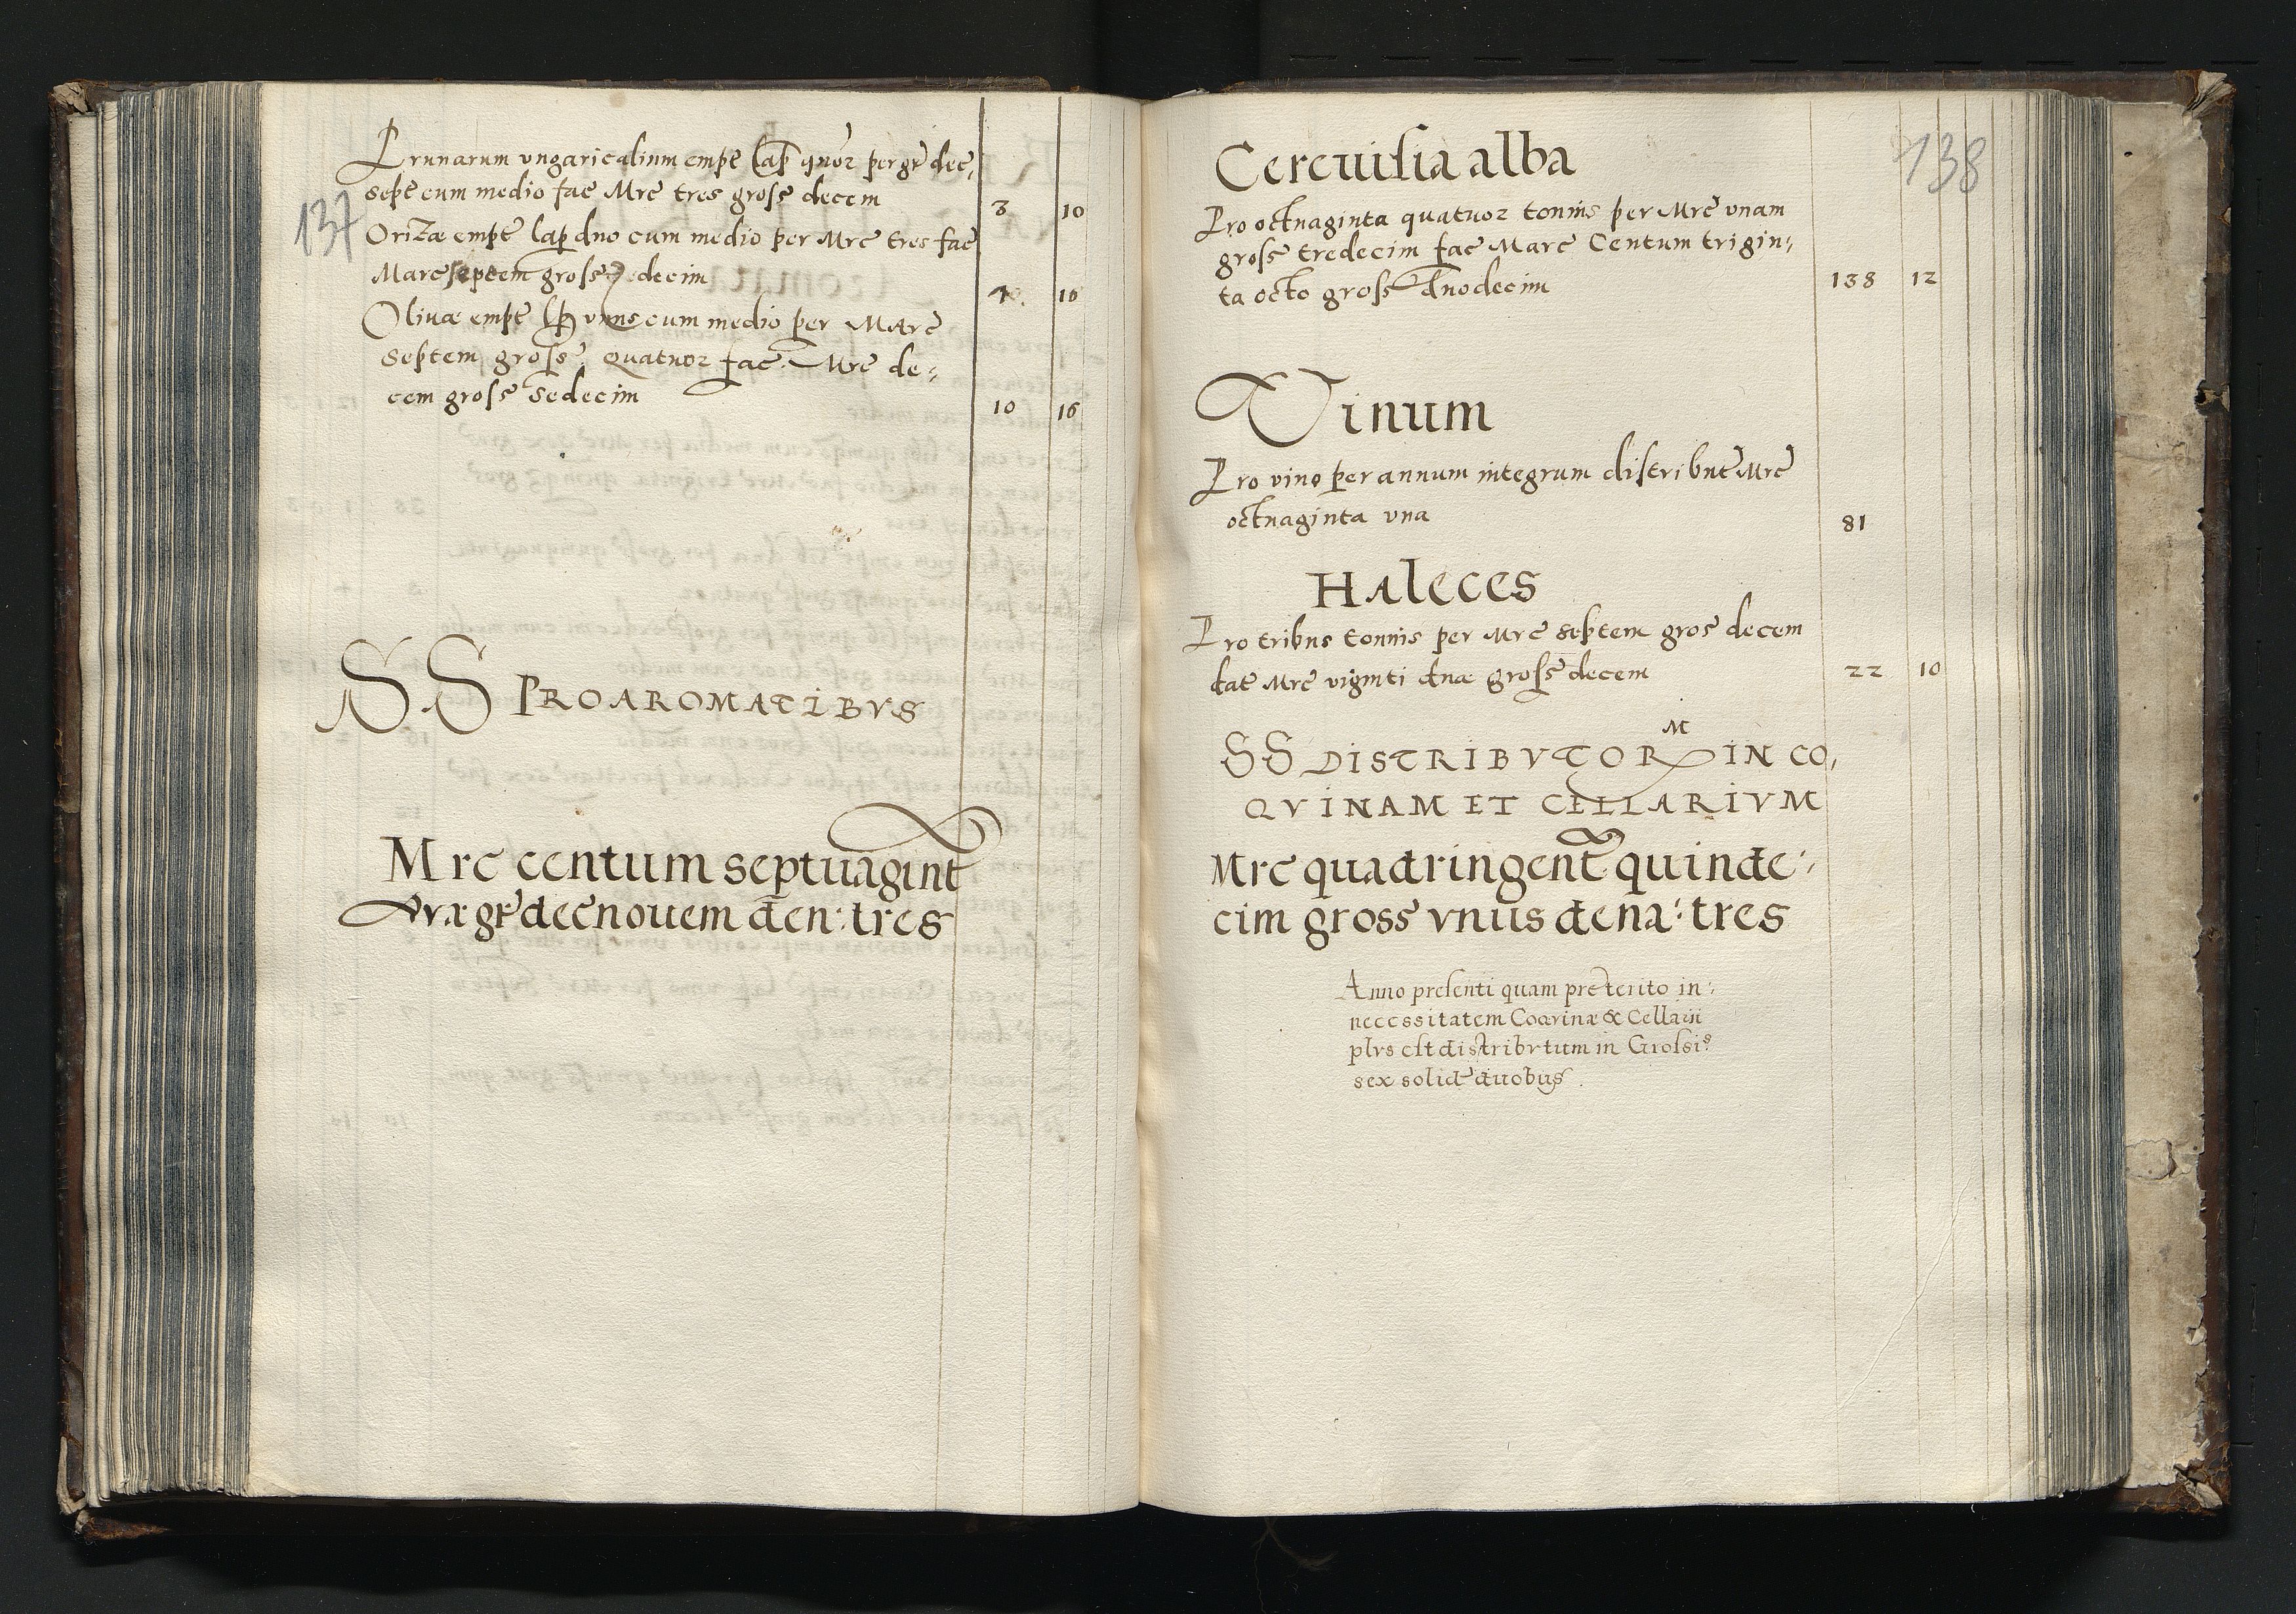 137
Prunarum vngaricalium empt lap quor per gr dec,
sept cum medio fac Mrc tres gross decem 3 10
Orizæ empt lap duo cum medio per Mrc tres fac
Marc septem gross decim 10
Oliuæ empt lap vnus cum medio per Marc
septem gross quatuor fac Mrc de,
cem gross sedecim 10 16
SS PRO AROMATIBVS
Mrc centum septuagint
gr decnouem den: tres
138
Cereuisia alba
Pro octuaginta quatuor tonnis per Mrc vnam
gross tredecim fac Marc Centum trigin,
ta octo gross duodecim 138 12
Vinum
Pro vino per annum integrum distribut Mrc
octuaginta vna 81
Haleces
Pro tribus tonnis per Mrc septem gros decem
dat Mrc viginti duæ gross decem 22 10
M
SS DISTRIBVTOR IN CO,
QVINAM ET CELLARIVM
Mrc quadringent quinde,
cim gross vnus dena: tres
Anno presenti quam preterito in,
necessitatem Coqrinæ & Cellarii
plvs est distribvtum in Grossis
sex solid dvobus.